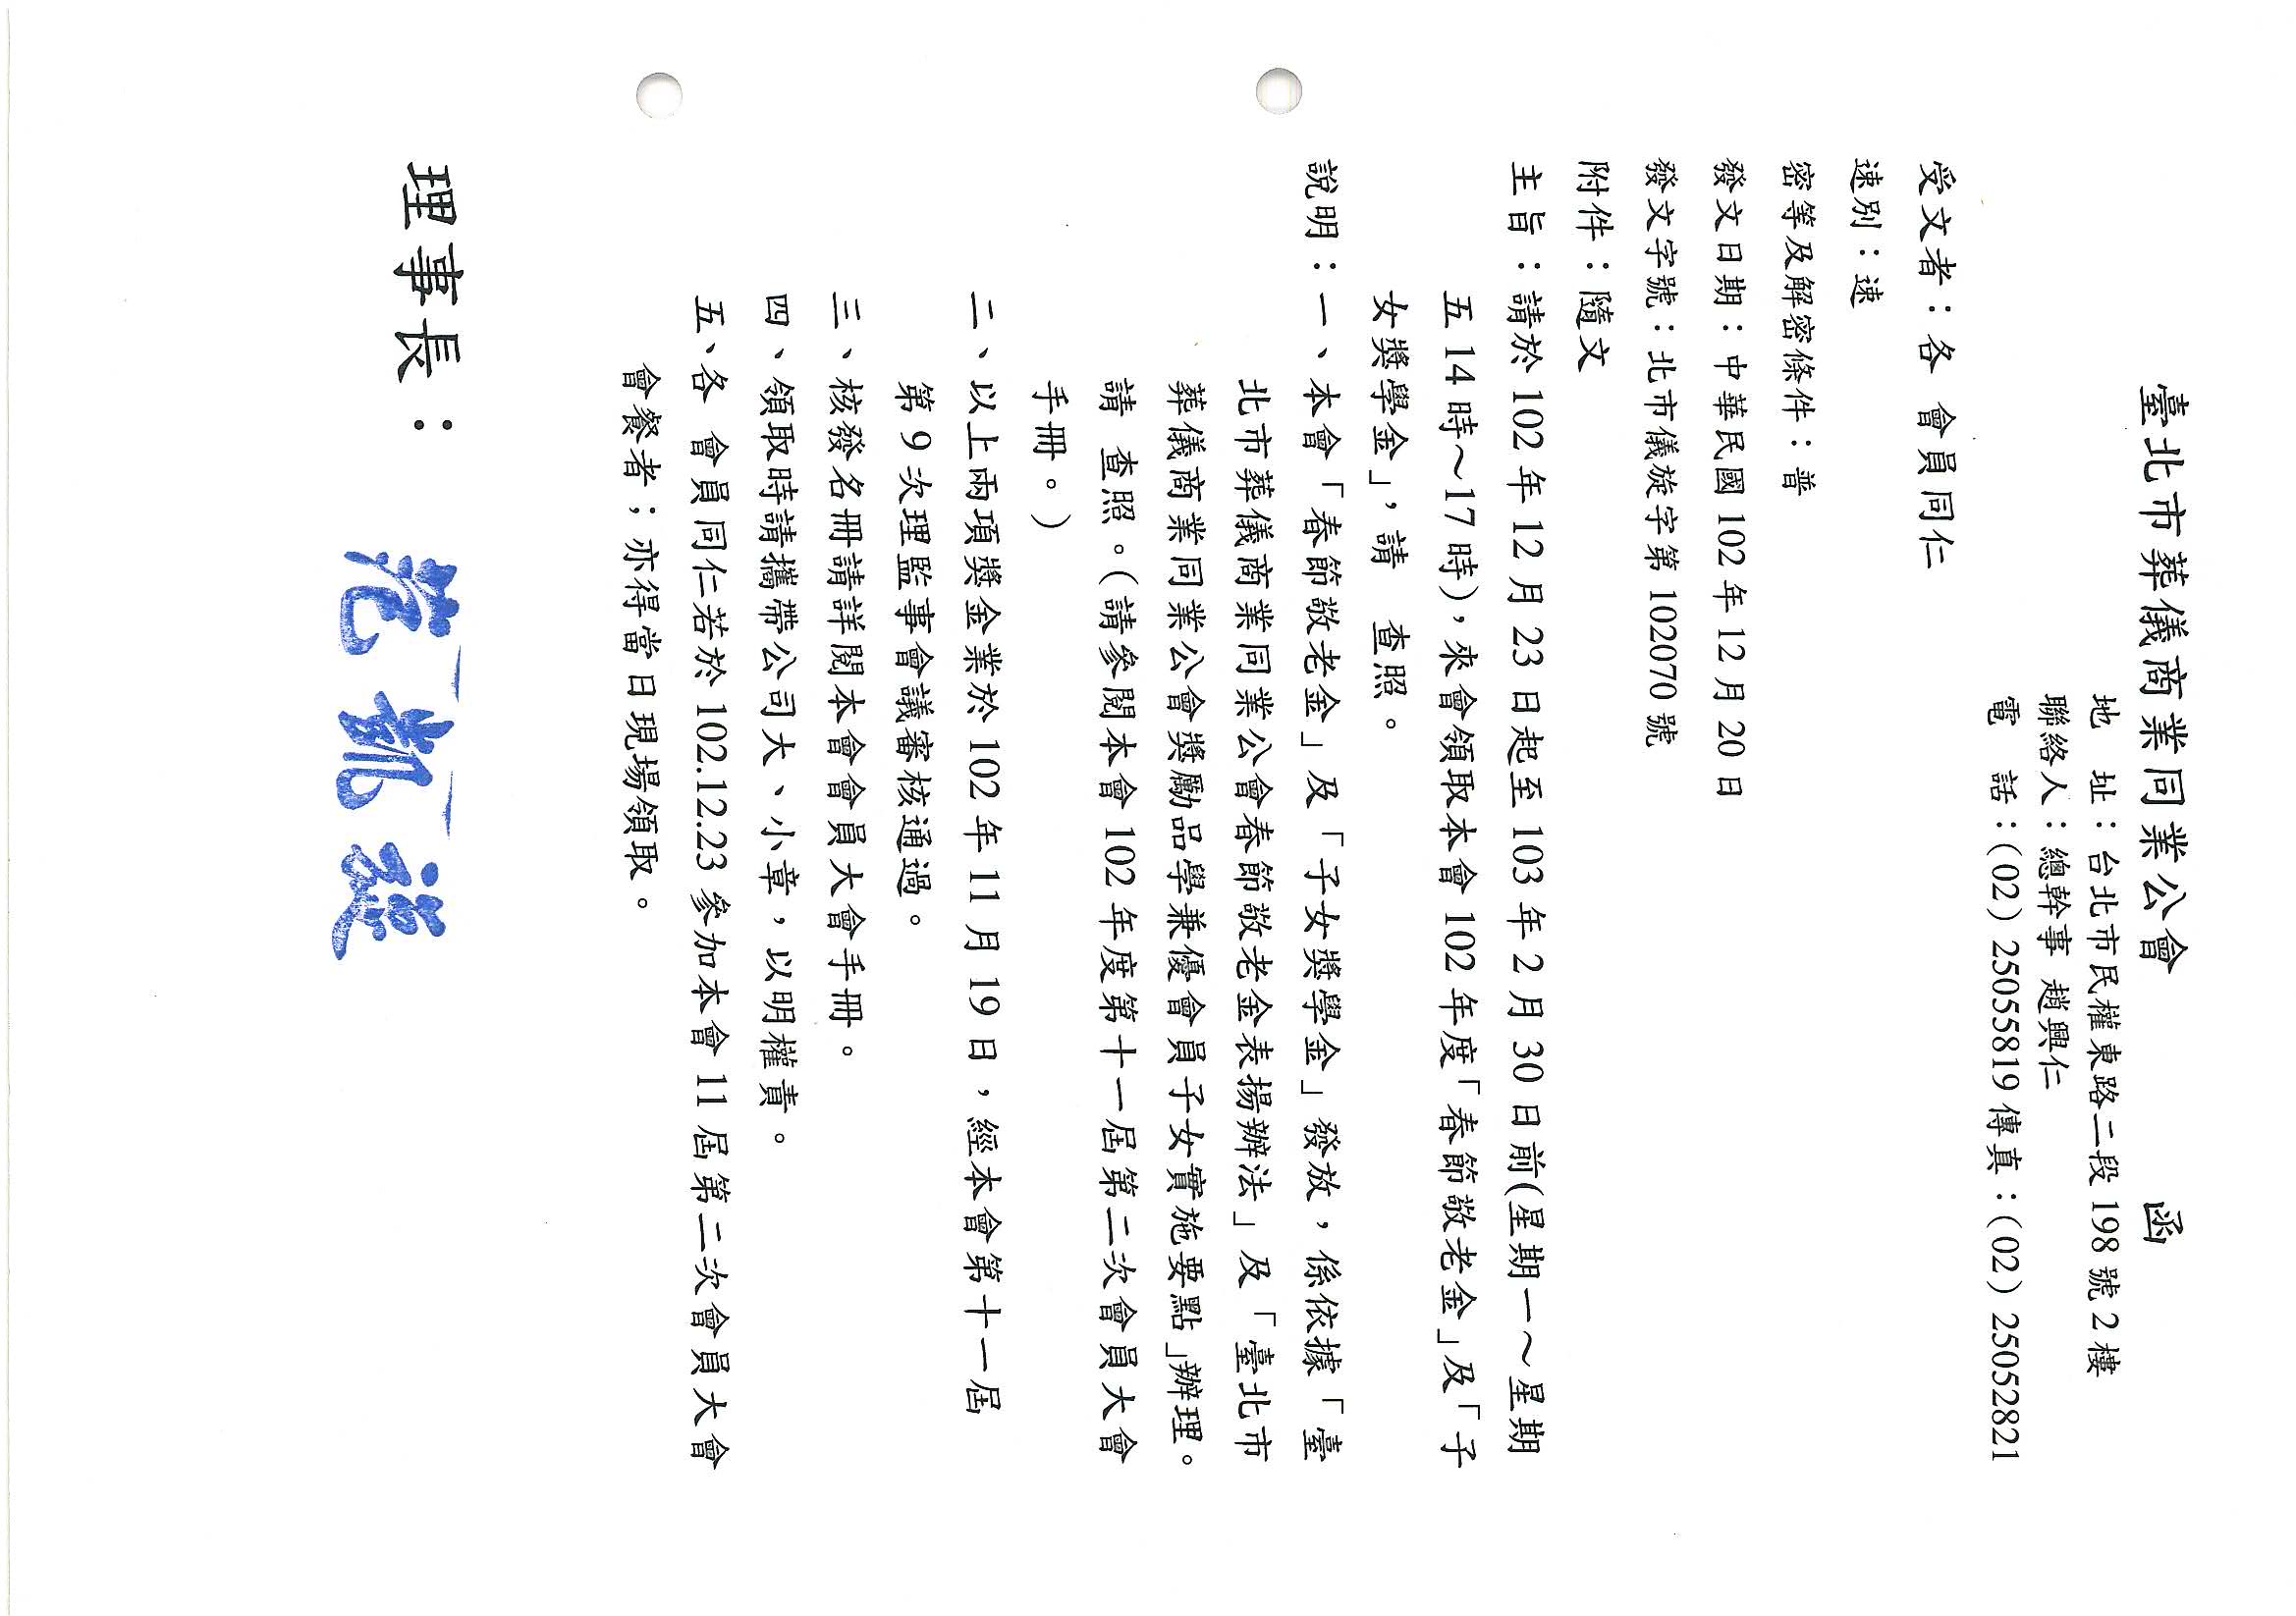 臺北市葬儀商業同業公會　　　函
地　址：台北市民權東路二段 198 號 2 樓
聯絡人：總幹事 趙興仁
電　話：(02) 25055819 傳真：(02) 25052821
受文者：各　會員同仁
速別：速
密等及解密條件：普
發文日期：中華民國 102 年 12 月 20 日
發文字號：北市儀旋字第 102070 號
附件：隨文
主旨：請於 102 年 12 月 23 日起至 103 年 2 月 30 日前(星期一～星期
五 14 時～17 時)，來會領取本會 102 年度「春節敬老金」及「子
女獎學金」，請　查照。
說明：一、本會「春節敬老金」及「子女獎學金」發放，係依據「臺
北市葬儀商業同業公會春節敬老金表揚辦法」及「臺北市
葬儀商業同業公會獎勵品學兼優會員子女實施要點」辦理。
請　查照。(請參閱本會 102 年度第十一屆第二次會員大會
手冊。)
二、以上兩項獎金業於 102 年 11 月 19 日，經本會第十一屆
第 9 次理監事會議審核通過。
三、核發名冊請詳閱本會會員大會手冊。
四、領取時請攜帶公司大、小章，以明權責。
五、各　會員同仁若於 102.12.23 參加本會 11 屆第二次會員大會
會餐者；亦得當日現場領取。
理事長：